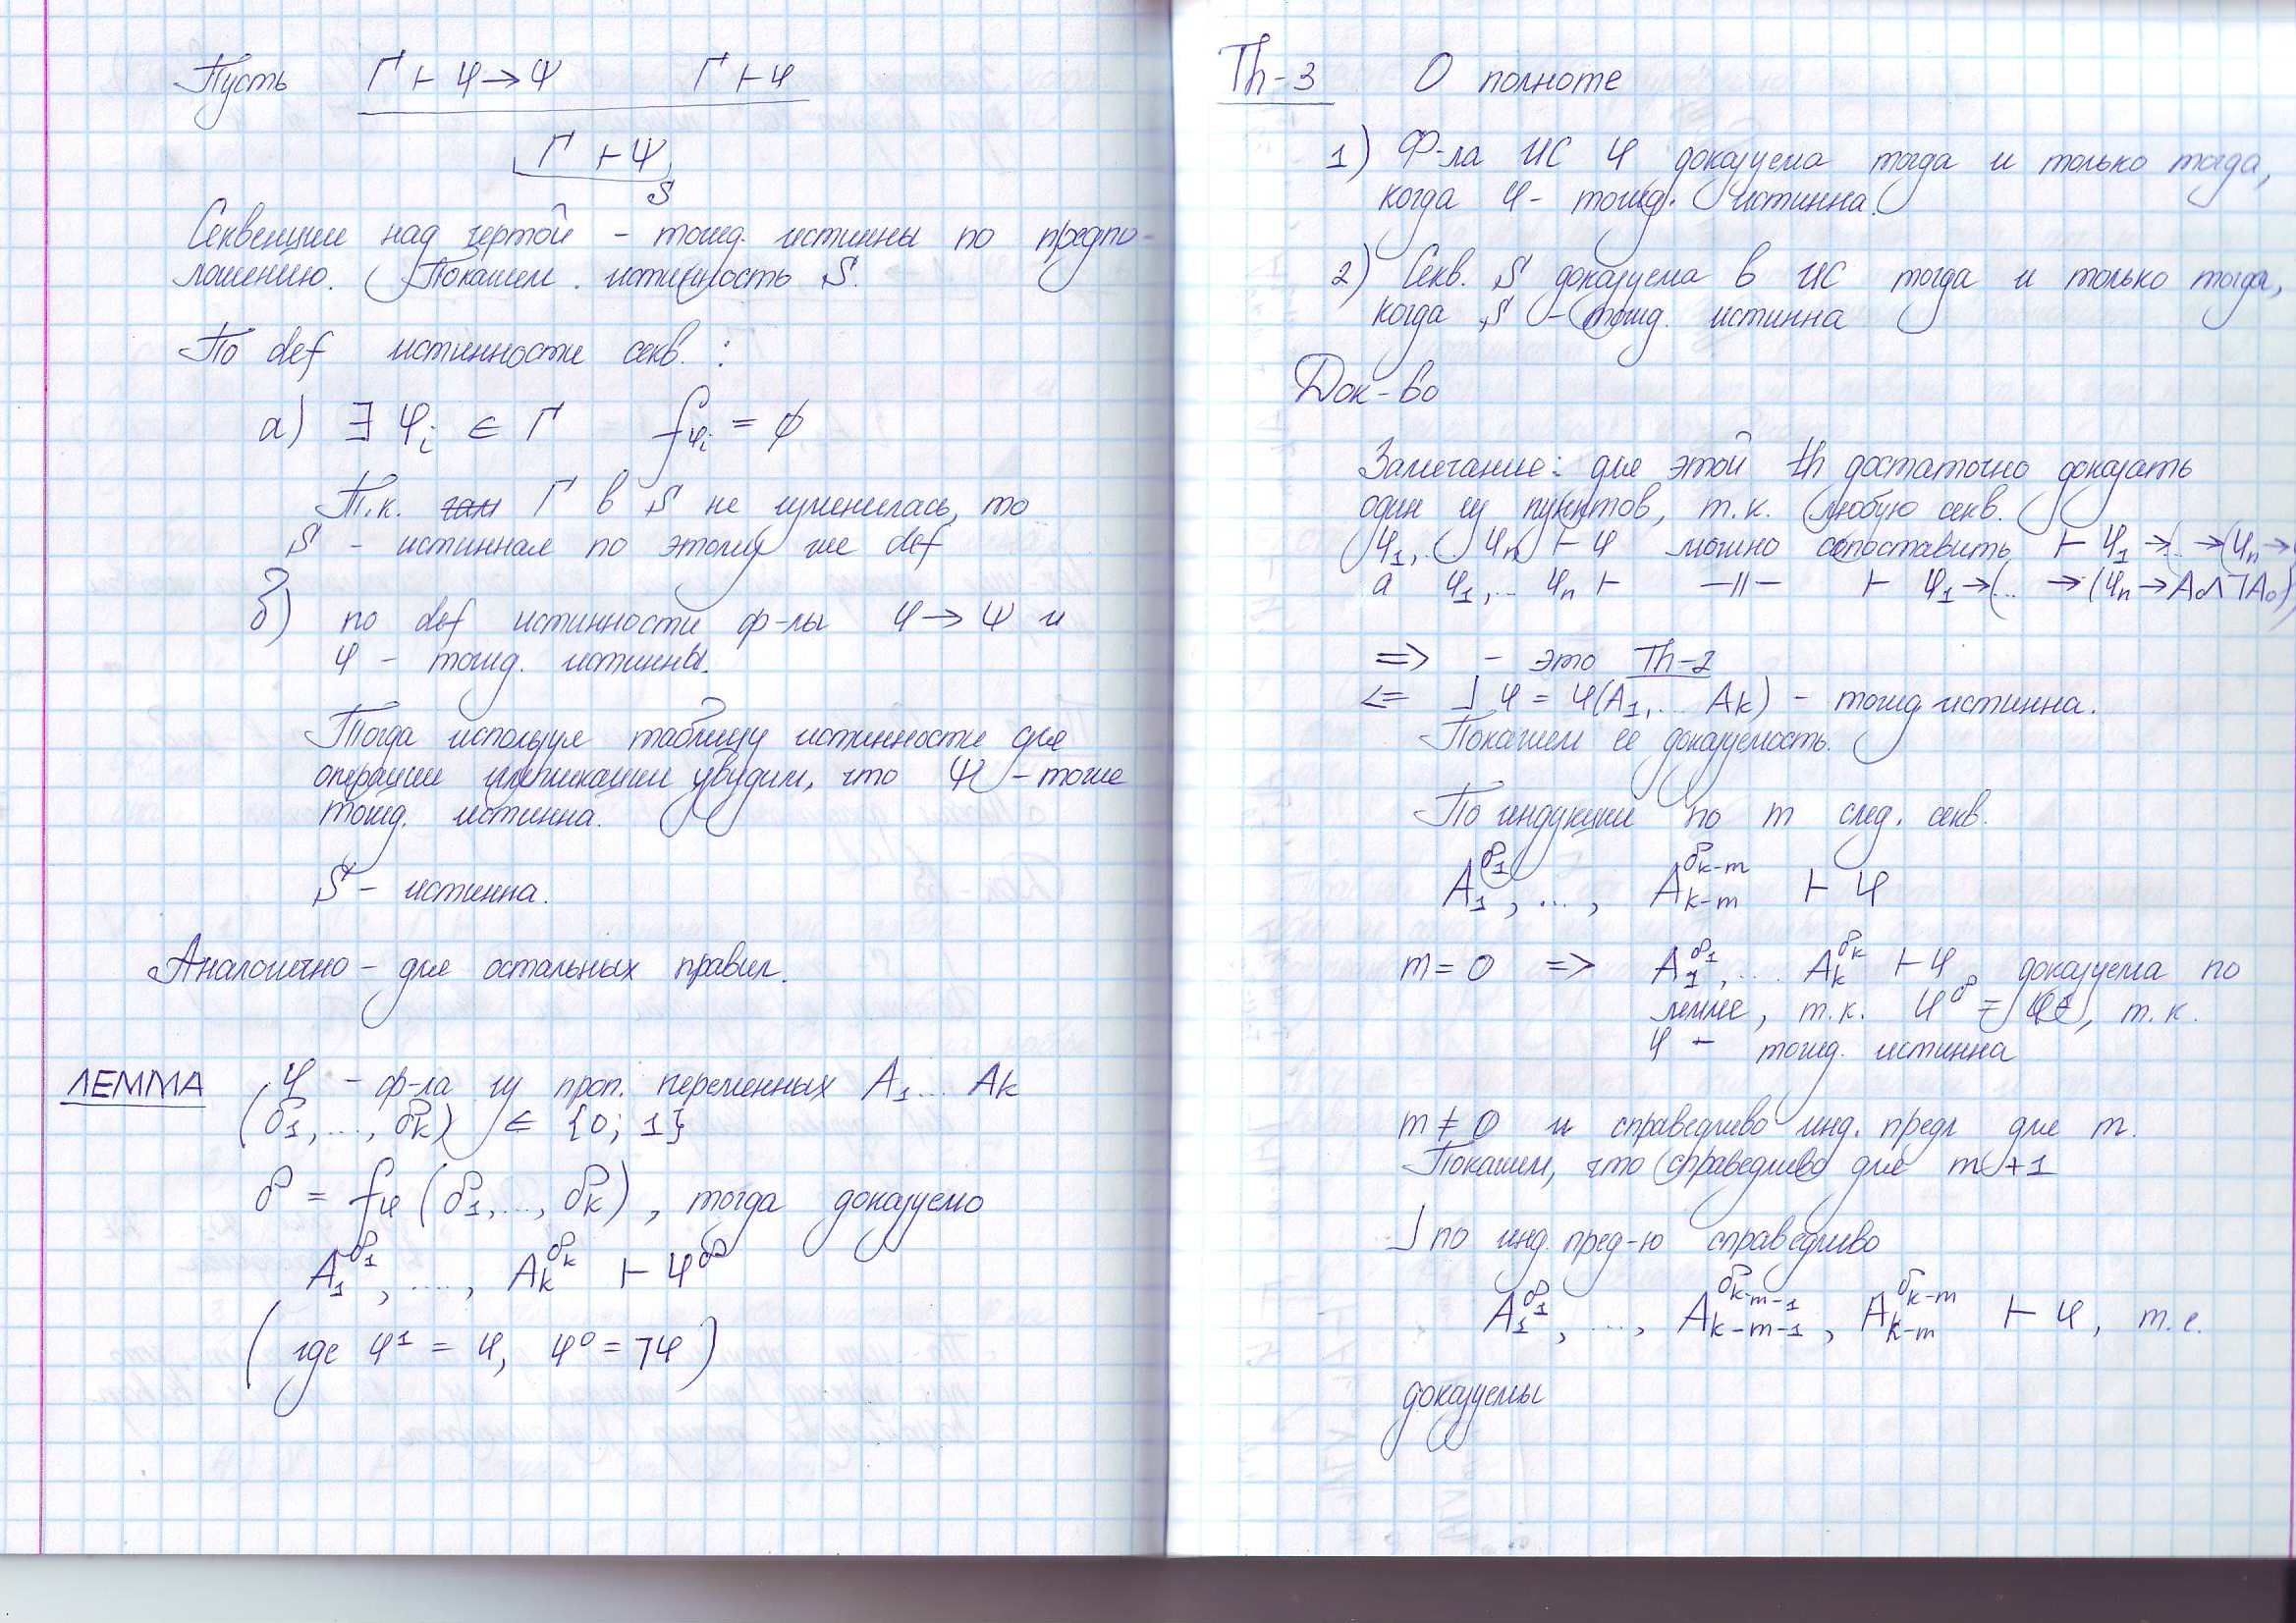 Пусть Γ ⊢ φ → ψ Γ ⊢ φ
Γ ⊢ ψ
S
Секвенции над чертой - тожд. истинны по предпо-
ложению. Покажем истинность S.
По def истинности секв. :
а) ∃ φi ∈ Γ fφi = 0
Т.к. Γ в S не изменилась, то
S - истинная по этому же def
б) по def истинности ф-лы φ → ψ и
φ - тожд. истинны.
Тогда используя таблицу истинности для
операции импликации увидим, что ψ - тоже
тожд. истинна.
S - истинна.
Аналогично - для остальных правил.
ЛЕММА φ - ф-ла из проп. переменных A1 ... Ak
(δ1, ..., δk) ∈ {0; 1}
δ = fφ (δ1, ..., δk), тогда доказуемо
A1^δ1, ...., Ak^δk ⊢ φ^δ
(где φ^1 = φ, φ^0 = ¬φ)
Th-3 О полноте
1) Ф-ла ИС φ доказуема тогда и только тогда,
когда φ - тожд. истинна.
2) Секв. S доказуема в ИС тогда и только тогда,
когда S - тожд. истинна
Док-во
Замечание: для этой th достаточно доказать
один из пунктов, т.к. любую секв.
φ1, ... φn ⊢ φ можно сопоставить ⊢ φ1 → (.. → (φn →
а φ1, ... φn ⊢ -||- ⊢ φ1 → (... → (φn → A0 ∧ ¬A0)
=> - это Th-2
<= ⌋ φ = φ(A1, ... Ak) - тожд. истинна.
Покажем ее доказуемость.
По индукции по m след. секв.
A1^δ1, ..., Ak-m^δk-m ⊢ φ
m = 0 => A1^δ1, ... Ak^δk ⊢ φ доказуема по
лемме, т.к. φ^δ = φ, т.к.
φ - тожд. истинна
m ≠ 0 и справедливо инд. предп для m.
Покажем, что справедливо для m + 1
⌋ по инд. пред-ю справедливо
A1^δ1, ..., Ak-m-1^δk-m-1, Ak-m^δk-m ⊢ φ, т.е.
доказуемы